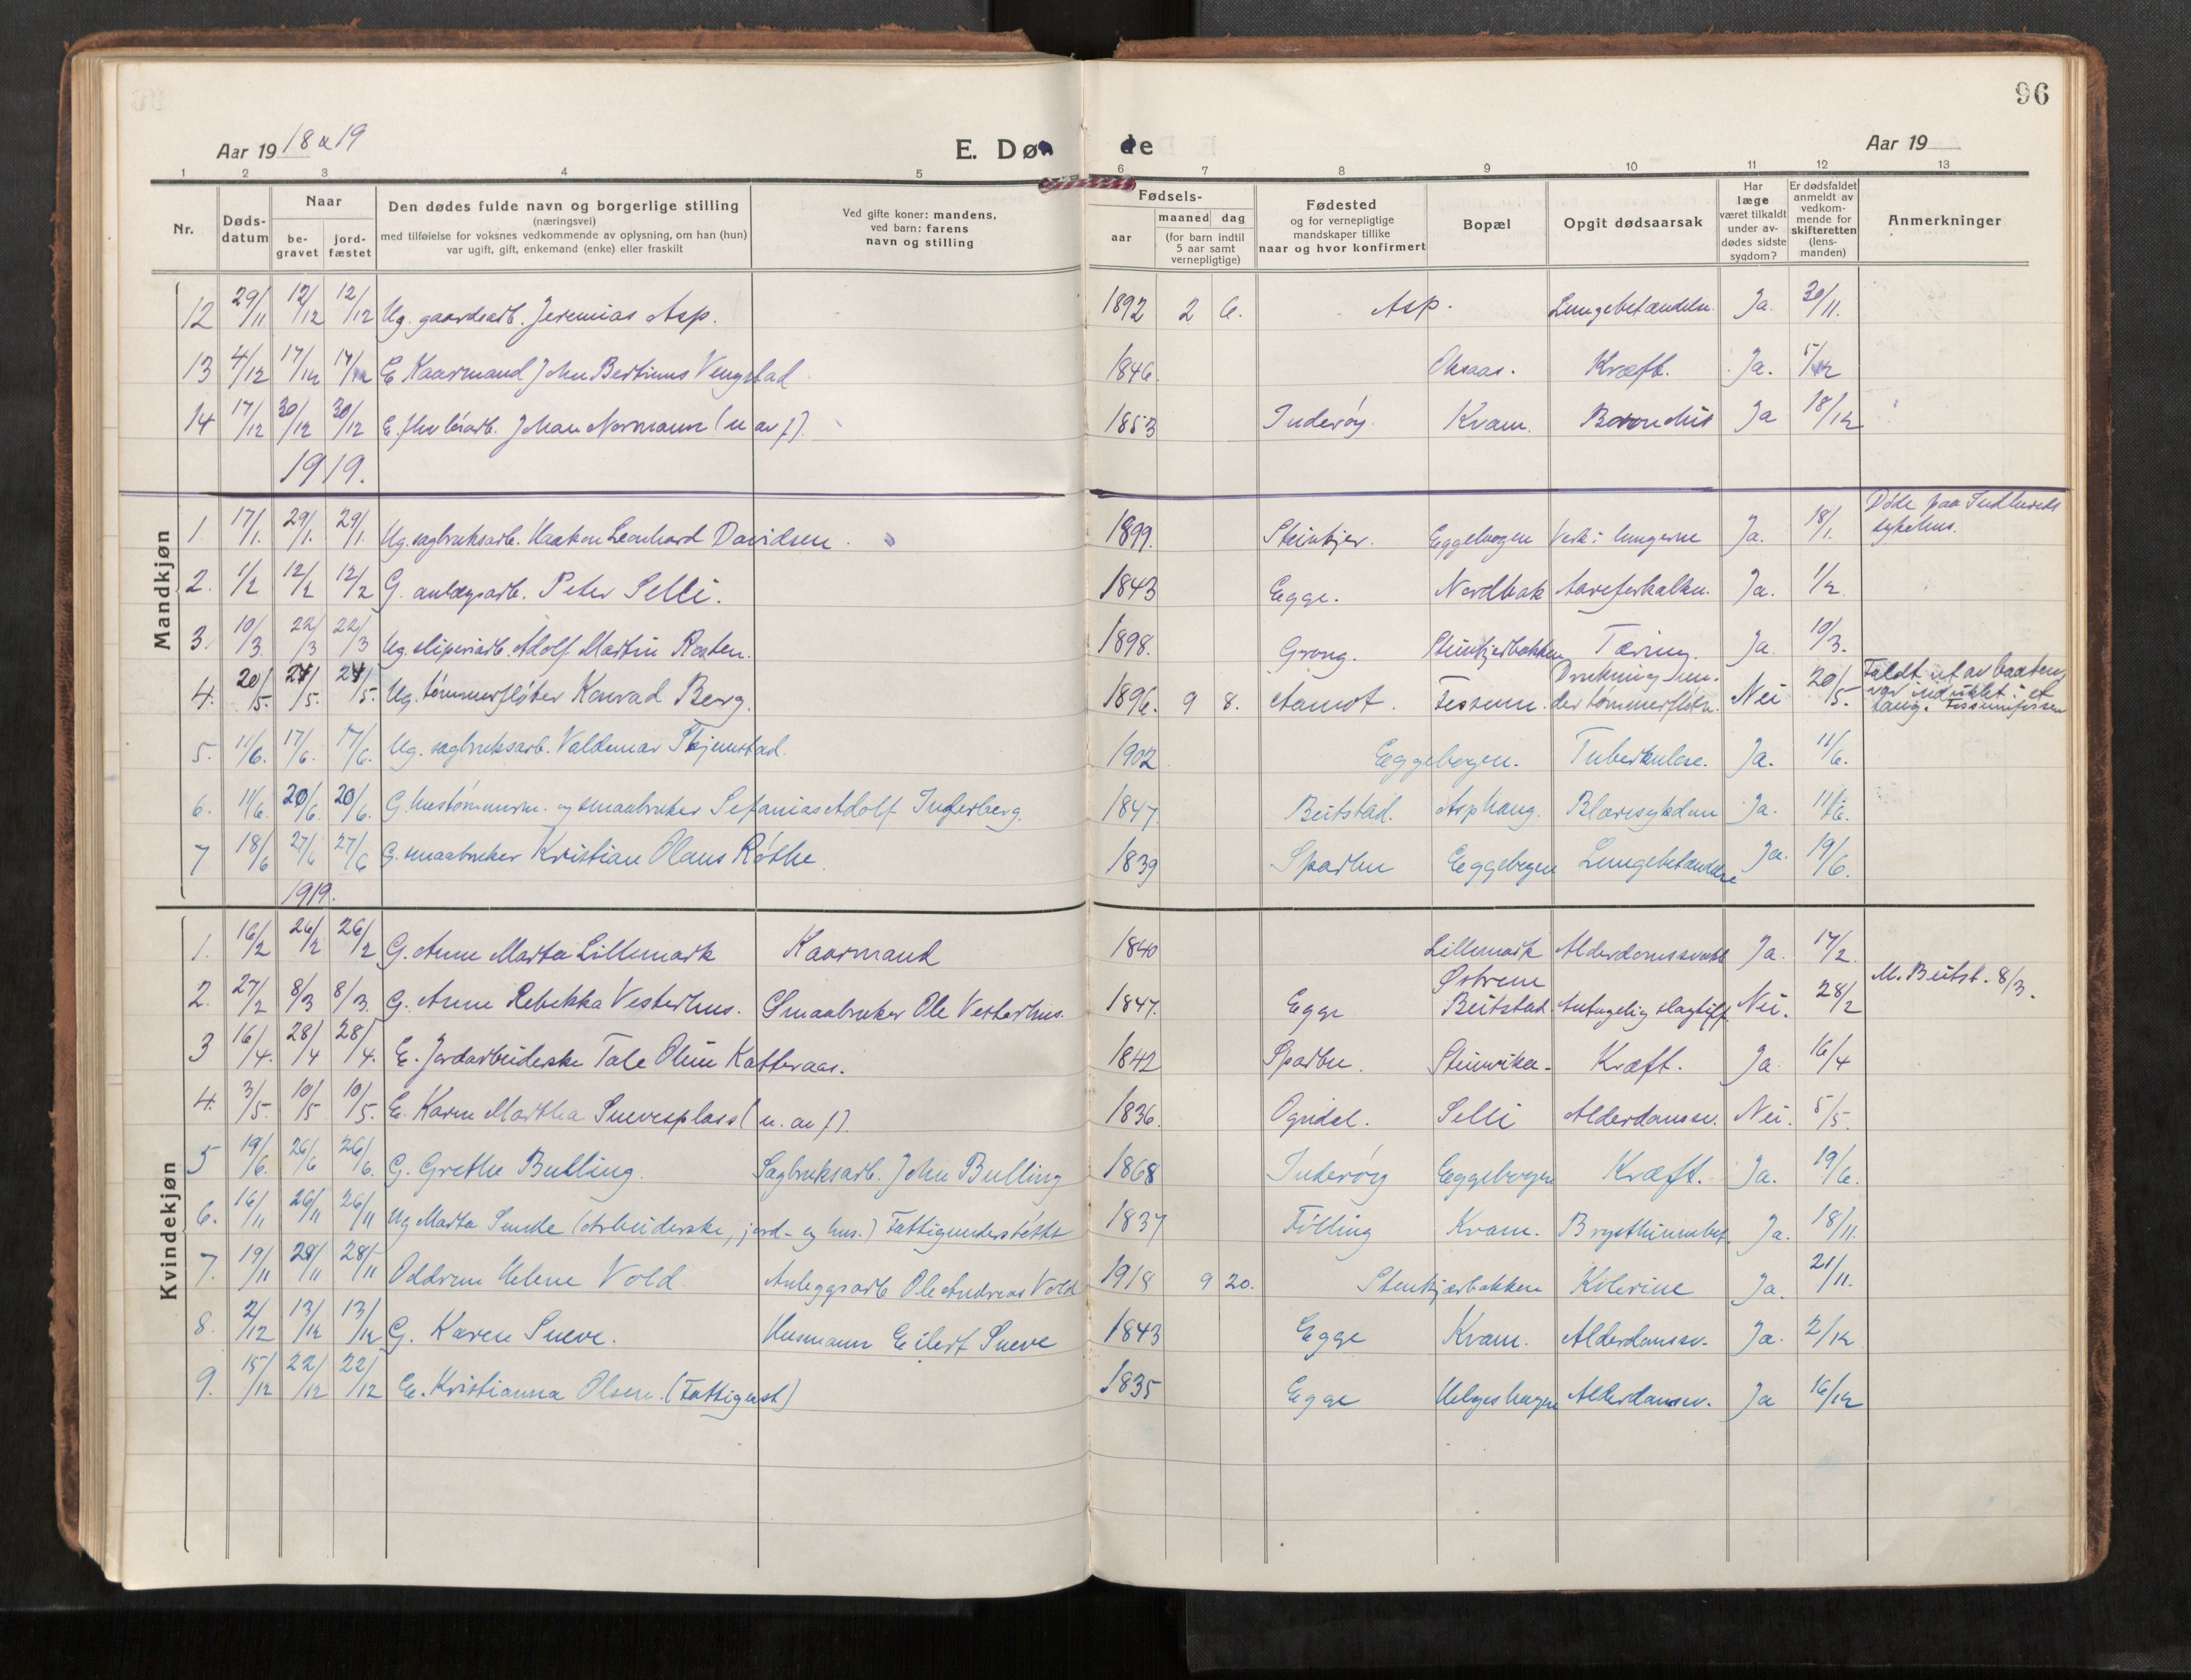 96
Aar 19 18 & 19
E. Dø de
Aar 19
1 2 3 4 5 6 7 8 9 10 11 12 13
Nr.
Døds-
datum
Naar
be-
gravet
jord-
fæstet
Den dødes fulde navn og borgerlige stilling
(næringsvei)
med tilføielse for voksnes vedkommende av oplysning, om han (hun)
var ugift, gift, enkemand (enke) eller fraskilt
Ved gifte koner: mandens,
ved barn: farens
navn og stilling
Fødsels-
aar
maaned dag
(for barn indtil
5 aar samt
vernepligtige)
Fødested
og for vernepligtige
mandskaper tillike
naar og hvor konfirmert
Bopæl
Opgit dødsaarsak
Har
læge
været tilkaldt
under av-
dødes sidste
sygdom?
Er dødsfaldet
anmeldt av
vedkom-
mende for
skifteretten
(lens-
manden)
Anmerkninger
Mandkjøn
12 29/11 12/12 12/12 Ug. gaardsarb. Jeremias Asp. 1892 2 6. Asp. Lungebetændelse. Ja. 30/11.
13 4/12 17/12 17/12 E Kaarmand John Bertinus Vengstad 1846. Oksaas. Kræft. Ja. 5/12
14 17/12 30/12 30/12 E. Johan Normann (u av f). 1853 Inderøy. Kvam. Bronchit Ja 18/12
1919.
1. 17/1. 29/1. 29/1. Ug. sagbruksarb. Haakon Leonhard Davidsen. 1899. Steinkjer. Eggebogen Verk i lungerne Ja. 18/1. Døde paa Indherreds
sykehus.
2. 1/2 12/2 12/2 G. anlægsarb. Peter Selli. 1843 Egge. Nordbak Aareforkalkn. Ja. 1/2
3. 10/3 22/3 22/3 Ug. sliperiarb. Adolf Martin 1898. Grong. Steinkjerbakken Tæring. Ja. 10/3.
4. 20/5. 27/5. 27/5. Ug. tømmerfløter Konrad Berg. 1896. 9 8. Aamot. Fossum. Drukning un-
der tømmerfløtn. Nei 20/5. Faldt ut av baaten,
var indviklet i et
taug. Fossumfossen
5. 11/6. 17/6. 17/6. Ug. sagbruksarb. Valdemar Skjemstad. 1902 Eggebogen. Tuberkulose. Ja. 11/6.
6. 11/6. 20/6 20/6. G. hustømmerm. og smaabruker Sefanias Adolf Inderberg. 1847 Beitstad. Asphaug. Blæresykdom Ja. 11/6.
7 18/6 27/6 27/6 G. smaabruker Kristian Olaus Røthe. 1839 Sparbu Eggebogen Lungebetændelse Ja. 19/6.
1919.
Kvindekjøn
1. 16/2 26/2 26/2 G. Anne Marta Lillemark Kaarmand 1840 Lillemark Alderdomssvakh. Ja. 17/2.
2. 27/2 8/3 8/3. G. Anne Rebekka Vesterhus. Smaabruker Ole Vesterhus. 1847. Egge Østrem
Beitstad. Antagelig slagtilf. Nei. 28/2 M. Beitst. 8/3.
3 16/4. 28/4 28/4. E. Jordarbeiderske Tale Oline Katteraas. 1842 Sparbu. Steinvika. Kræft. Ja. 16/4
4. 3/5. 10/5 10/5. E. Karen Martha Snevesplass (u. av f). 1836. Ogndal. Selli Alderdomssv. Nei. 5/5.
5 19/6. 26/6 26/6. G. Grethe Bulling. Sagbruksarb. John Bulling 1868 Inderøy Eggebogen Kræft. Ja. 19/6.
6. 16/11 26/11 26/11 Ug Marta (Arbeiderske, jord- og hus.) Fattigunderstøttet 1837 Følling Kvam. Brysthinnebet. Ja. 18/11.
7. 19/11 28/11 28/11 Oddrun Helene Vold. Anleggsarb Ole Andreas Vold 1918 9 20. Stenkjærbakken Kolerine Ja. 21/11.
8. 2/12 13/12 13/12 G. Karen Sneve. Husmann Eilert Sneve 1843 Egge Kvam. Alderdomssv. Ja. 2/12
9. 15/12 22/12 22/12 E. Kristianna Olsen. (Fattigunst) 1835 Egge Helgeshagen Alderdomssv. Ja 16/12